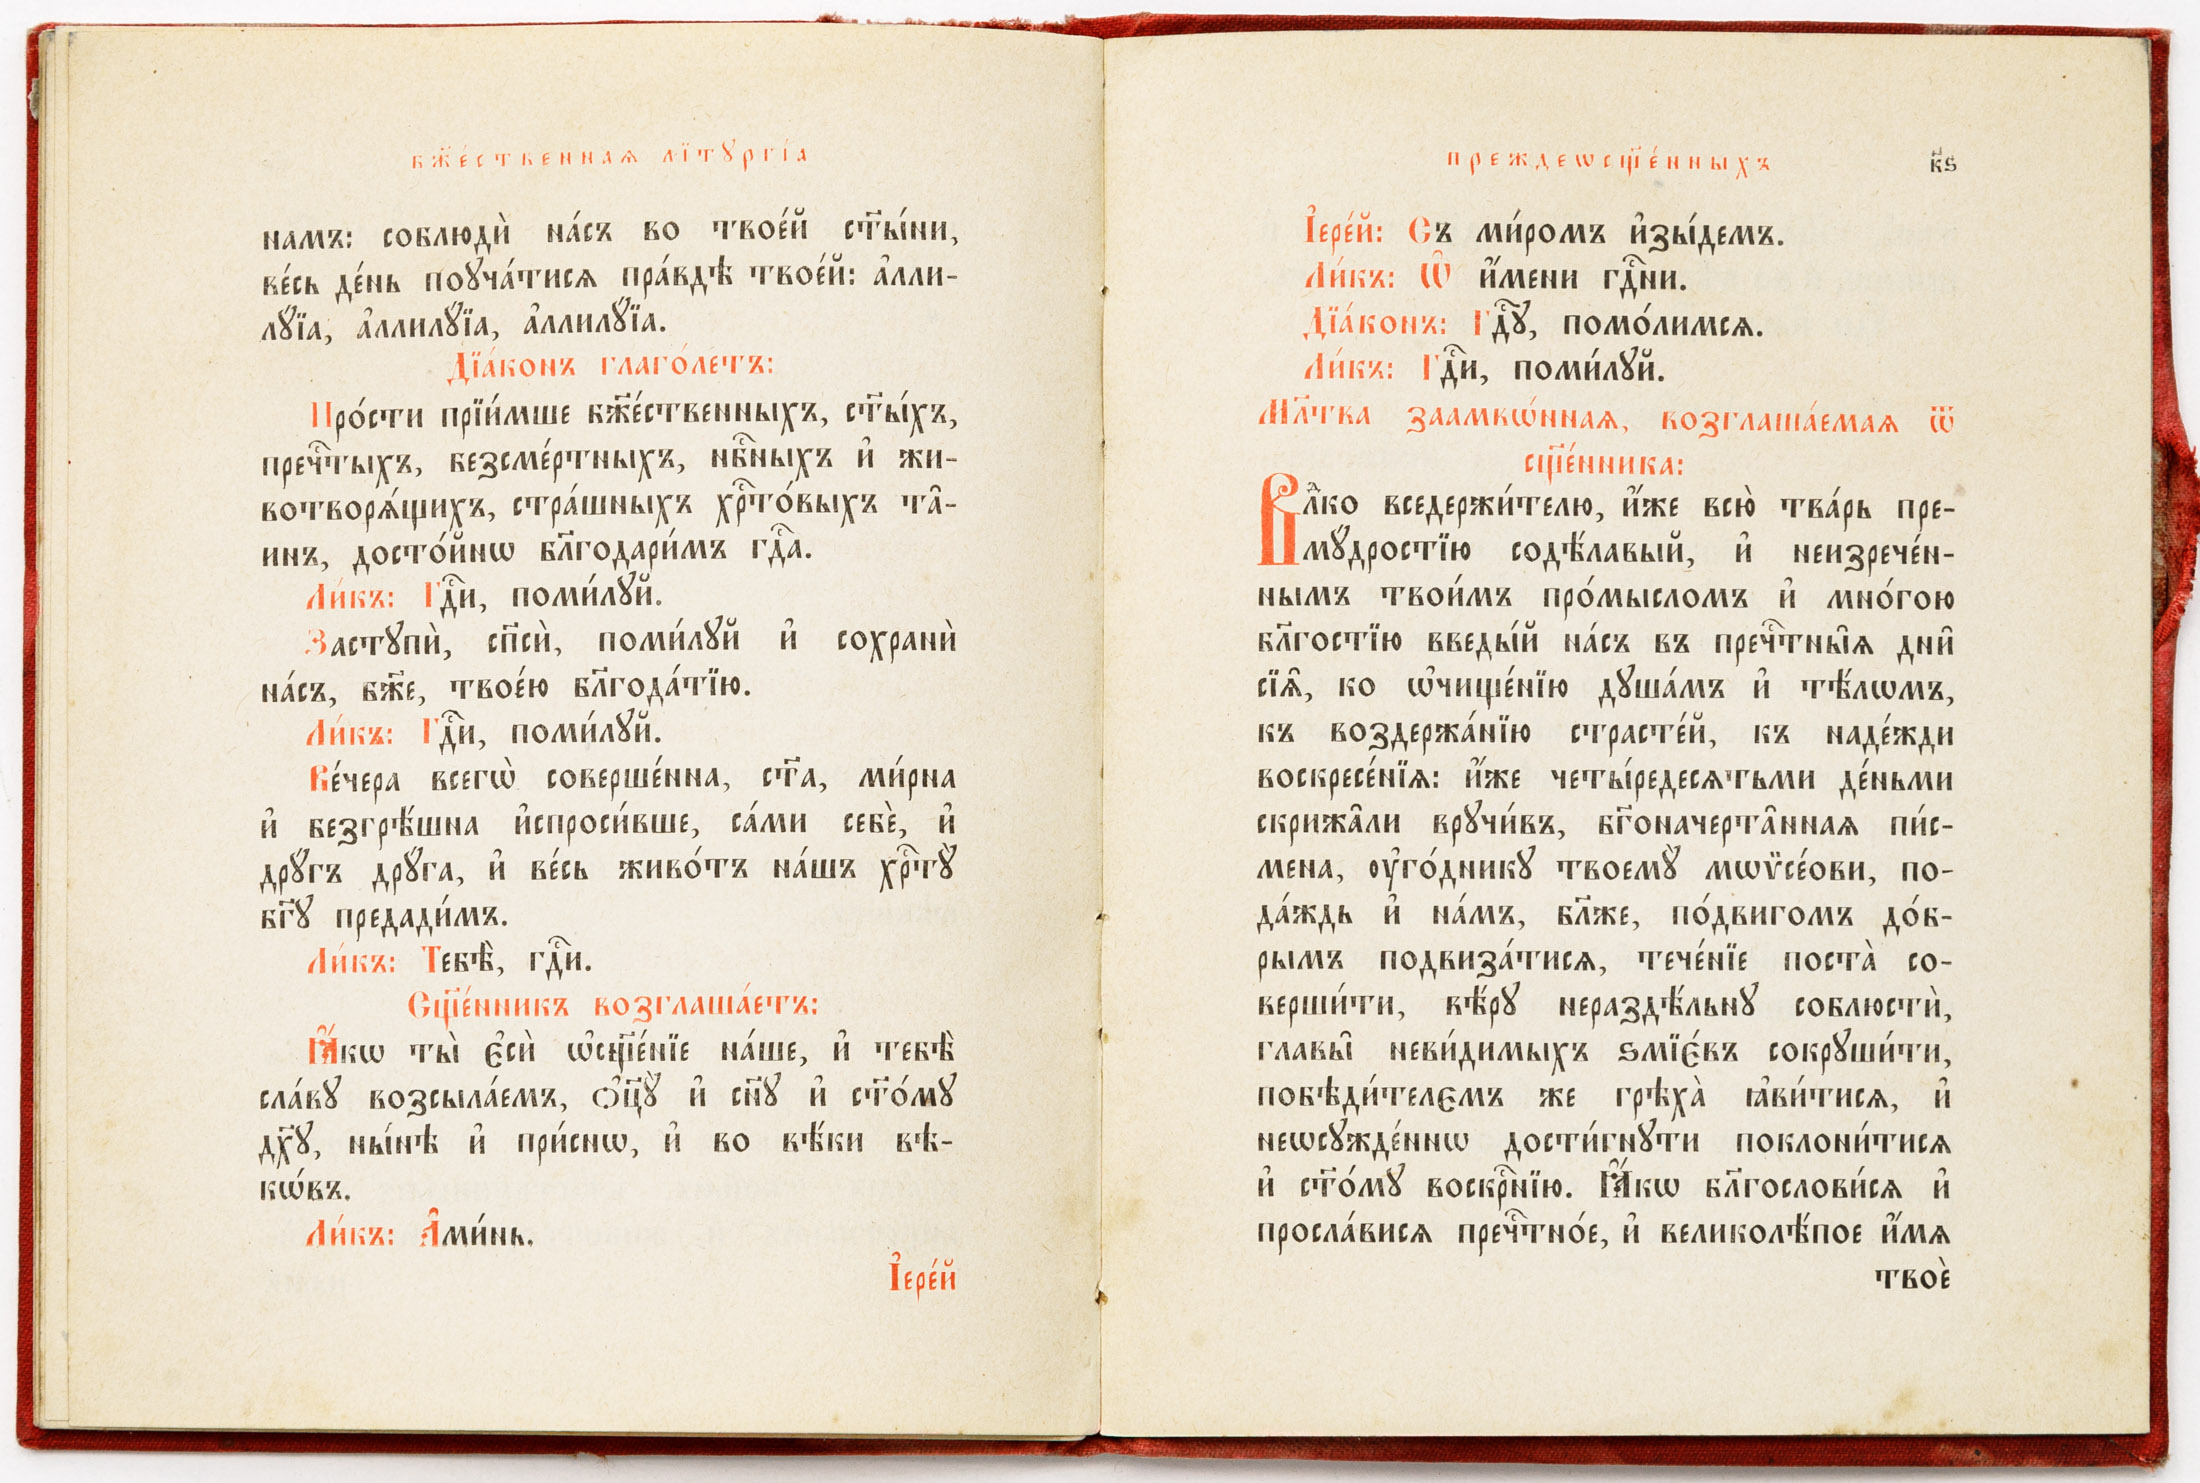 бж҃е́ственнаѧ лїтꙋргі́а
намъ: соблюдѝ на́съ во твое́й ст҃ы́ни,
ве́сь де́нь поꙋча́тисѧ пра́вдѣ твое́й: а҆лли-
лꙋ́їа, а҆ллилꙋ́їа, а҆ллилꙋ́їа.
Дїа́конъ глаго́летъ:
Про́сти прїи́мше бж҃е́ственныхъ, ст҃ы́хъ,
пречⷭ҇тыхъ, безсме́ртныхъ, нбⷭ҇ныхъ и҆ жи-
вотворѧ́щихъ, стра́шныхъ хрⷭ҇то́выхъ та̑-
инъ, досто́йнѡ бл҃годари́мъ гдⷭ҇а.
Ли́къ: Гдⷭ҇и, поми́лꙋй.
Застꙋпѝ, сп҃сѝ, поми́лꙋй и҆ сохранѝ
на́съ, бж҃е, твое́ю бл҃года́тїю.
Ли́къ: Гдⷭ҇и, поми́лꙋй.
Ве́чера всегѡ̀ соверше́нна, ст҃а, ми́рна
и҆ безгрѣ́шна и҆спроси́вше, са́ми себѐ, и҆
дрꙋ́гъ дрꙋ́га, и҆ ве́сь живо́тъ на́шъ хрⷭ҇тꙋ̀
бг҃ꙋ предади́мъ.
Ли́къ: Тебѣ̀, гдⷭ҇и.
Сщ҃е́нникъ возглаша́етъ:
Ꙗ҆́кѡ ты̀ є҆сѝ ѡ҆сщ҃е́нїе на́ше, и҆ тебѣ̀
сла́вꙋ возсыла́емъ, ѻ҆ц҃ꙋ̀ и҆ сн҃ꙋ и҆ ст҃о́мꙋ
дх҃ꙋ, ны́нѣ и҆ при́снѡ, и҆ во вѣ́ки вѣ-
кѡ́въ.
Ли́къ: А҆ми́нь.
І҆ере́й
преждеѡсщ҃е́нныхъ к҃ѕ
І҆ере́й: Съ ми́ромъ и҆зы́демъ.
Ли́къ: Ѡ҆ и҆́мени гдⷭ҇ни.
Дїа́конъ: Гдⷭ҇ꙋ, помо́лимсѧ.
Ли́къ: Гдⷭ҇и, поми́лꙋй.
Мл҃тва заамвѡ́ннаѧ, возглаша́емаѧ ѿ
сщ҃е́нника:
Влⷣко вседержи́телю, и҆́же всю̀ тва́рь пре-
мꙋ́дростїю содѣ́лавый, и҆ неизрече́н-
нымъ твои́мъ про́мысломъ и҆ мно́гою
бл҃гостїю введы́й на́съ въ пречⷭ҇тны̑ѧ дни̑
сїѧ̑, ко ѡ҆чище́нїю дꙋша́мъ и҆ тѣ́лѡмъ,
къ воздержа́нїю страсте́й, къ наде́жди
воскресе́нїѧ: и҆́же четы́редесѧтьми де́ньми
скрижа̑ли врꙋчи́въ, бг҃оначерта̑ннаѧ пи́с-
мена, ᲂу҆го́дникꙋ твоемꙋ̀ мѡѷсе́ови, по-
да́ждь и҆ на́мъ, бл҃же, по́двигомъ до́б-
рымъ подвиза́тисѧ, тече́нїе поста̀ со-
верши́ти, вѣ́рꙋ нераздѣ́льнꙋ соблюстѝ,
главы̑ неви́димыхъ ѕмїє́въ сокрꙋши́ти,
побѣди́телємъ же грѣха̀ ꙗ҆ви́тисѧ, и҆
неѡсꙋжде́ннѡ дости́гнꙋти поклони́тисѧ
и҆ ст҃о́мꙋ воскрⷭ҇нїю. Ꙗ҆́кѡ бл҃гослови́сѧ и҆
просла́висѧ пречⷭ҇тно́е, и҆ великолѣ́пое и҆́мѧ
твоѐ